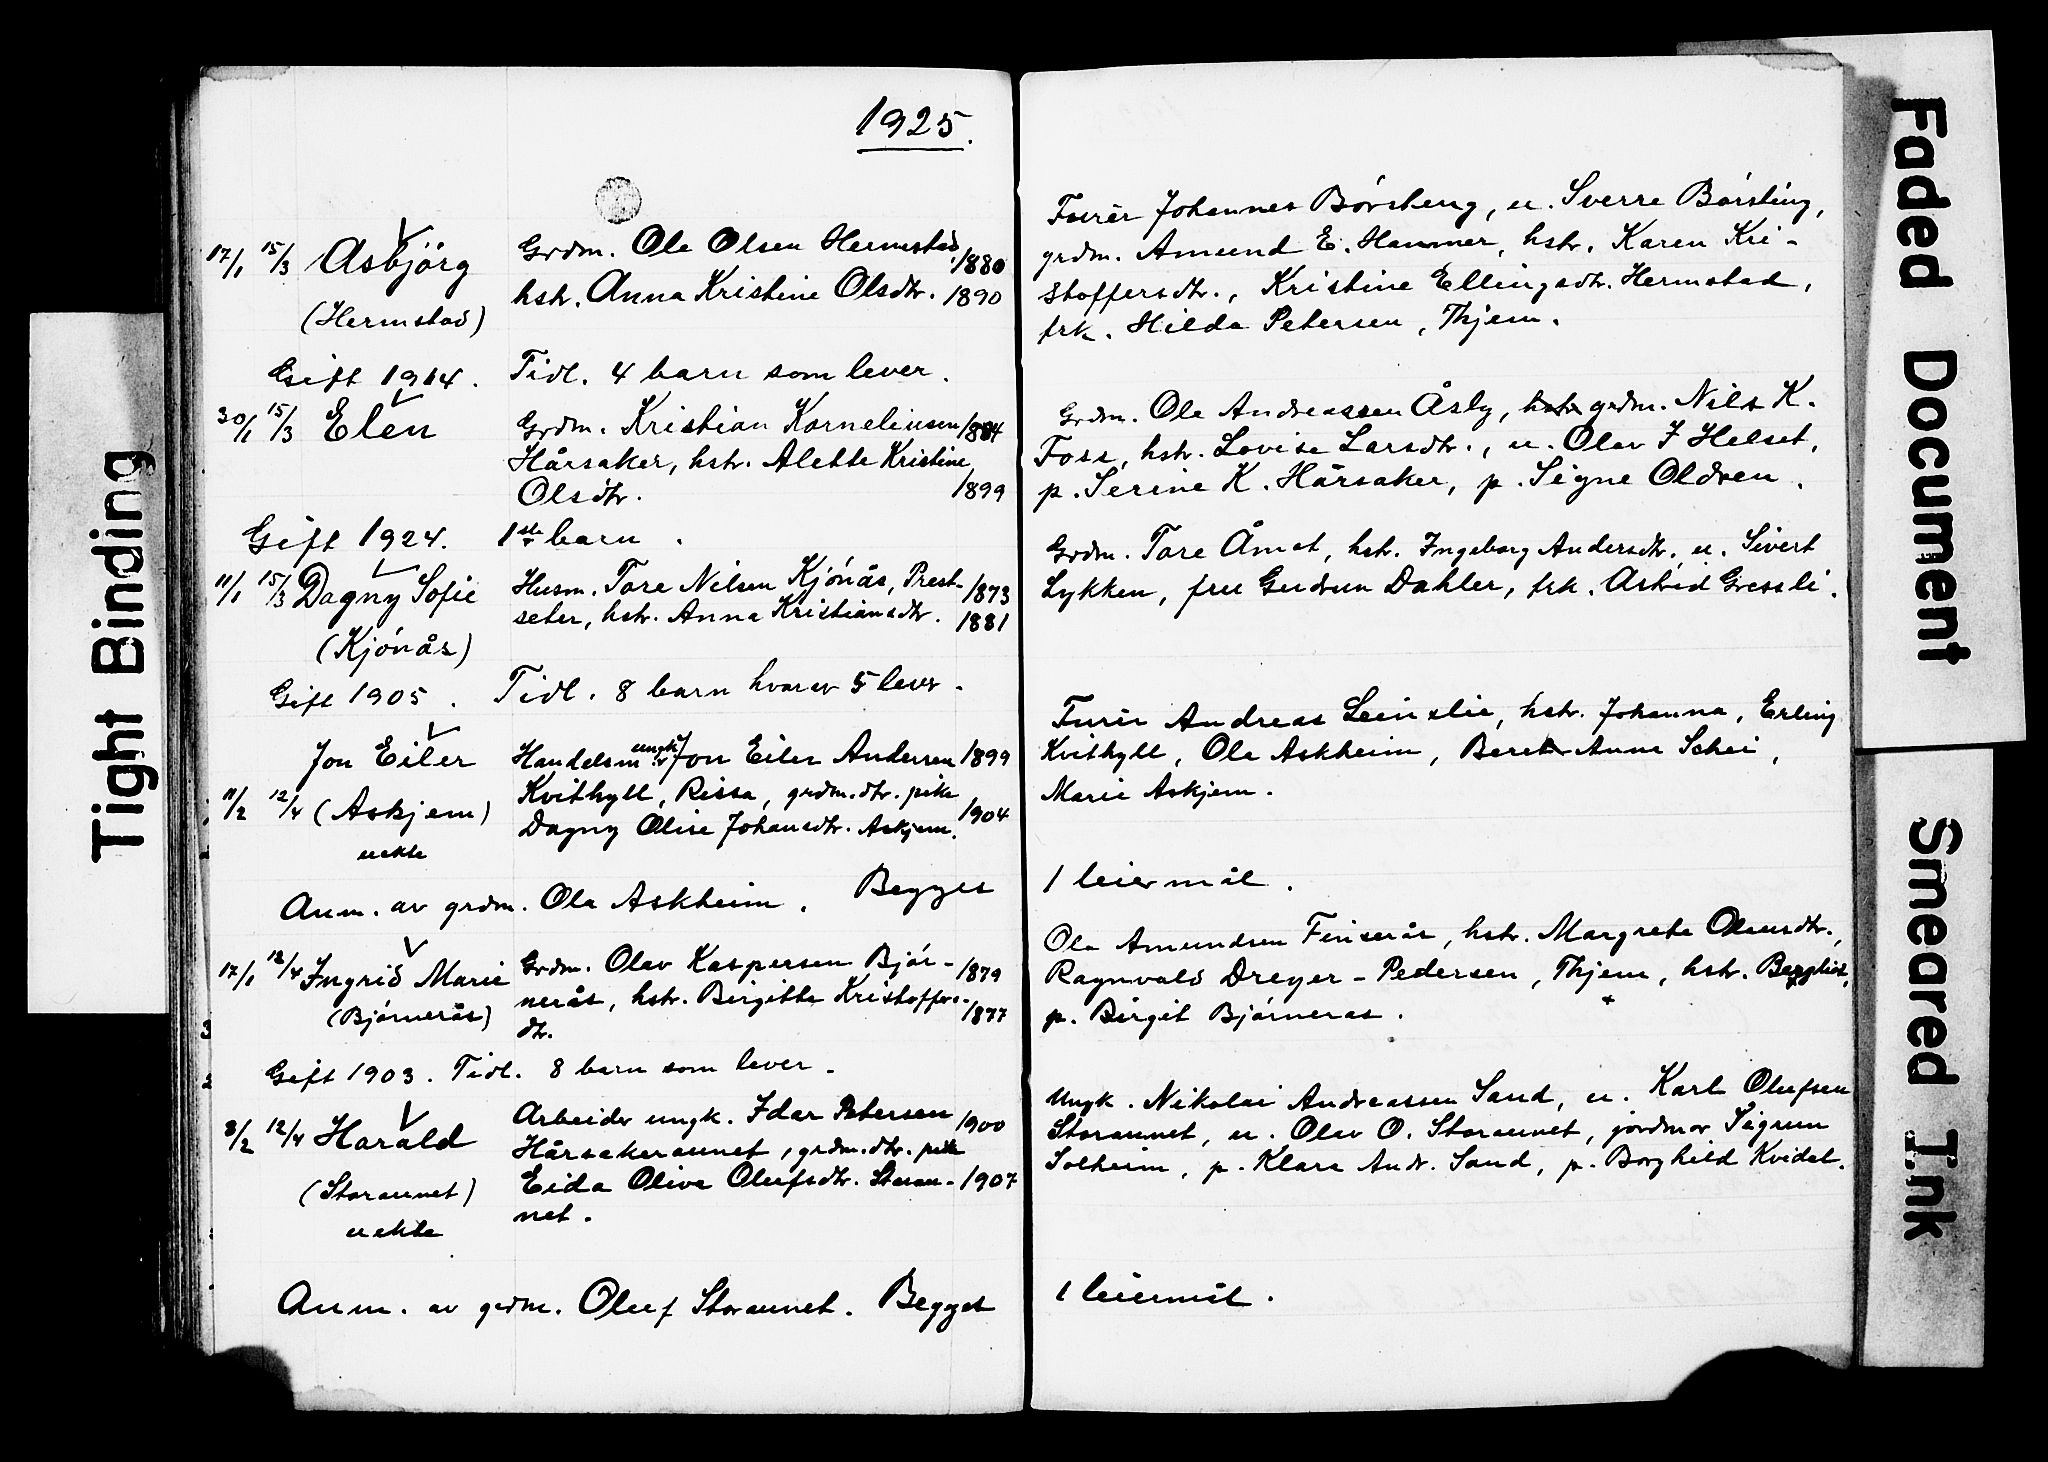 1925.
17/1 15/3 Asbjörg
(Hermstad)
Grdm. Ole Olsen Hermstad, 1880
hstr. Anna Kristine Olsdtr. 1890
Gift 1914. Tidl. 4 barn som lever.
30/1 15/3 Elen
Grdm. Kristian Korneliusen 1884
Hårsaker, hstr. Alette Kristine
Olsdtr. 1899
Gift 1924. 1ste barn.
11/1 15/3 Dagny Sofie
(Kjönås)
Husm. Tore Nilsen Kjönås, Prest- 1873
seter, hstr. Anna Kristiansdtr. 1881
Gift 1905. Tidl. 8 barn hvorav 5 lever.
Jon Eiler
11/2 12/4 (Askjem)
uekte
Handelsm. ungk. Jon Eiler Andersen 1899
Kvithyll, Rissa, grdm.dtr. pike
Dagny Olise Johansdtr. Askjem. 1904
Anm. av grdm. Ole Askheim. Begges
17/1 12/4 Ingrid Marie
(Bjørnerås)
Grdm. Olav Kaspersen Bjør- 1879
nerås, hstr. Birgitte Kristoffers- 1877
dtr.
Gift 1903. Tidl. 8 barn som lever.
8/2 12/4 Harald
(Storaunet)
uekte
Arbeider ungk. Idar Petersen 1900
Hårsakeraunet, grdm.dtr. pike
Eida Olive Olufsdtr. Storau- 1907
net.
Anm. av grdm. Oluf Storaunet. Begges
Furér Johannes Börsheng, u. Sverre Børsting,
grdm. Amund E. Hammer, hstr. Karen Kri-
stoffersdtr., Kristine Ellingsdtr. Hermstad,
frk. Hilda Petersen, Thjem.
Grdm. Ole Andreassen Åsly, hstr. grdm. Nils K.
Foss, hstr. Lovise Larsdtr., u. Olav J Helset,
p. Serine K. Hårsaker, p. Signe Oldren.
Grdm. Tore Åmot, hstr. Ingeborg Andersdtr. u. Sivert
Lykken, fru Gudrun Dahler, frk. Astrid Gressli.
Furér Andreas Leinslie, hstr. Johanna, Erling
Kvithyll, Ole Askheim, Anne Schei,
Marie Askjem.
1 leiermål.
Ole Amundsen Finserås, hstr. Margrete Olausdtr.,
Ragnvald Dreyer-Pedersen, Thjem, hstr. Bergliot,
p. Birgit Bjørnerås.
Ungk. Nikolai Andreassen Sand, u. Karl Olufsen
Storaunet, u. Olav O. Storaunet, jordmor Sigrun
Solheim, p. Klara Andr. Sand, p. Borghild Kvidal.
1 leiermål.
Tight Binding
Faded Document
Smeared Ink